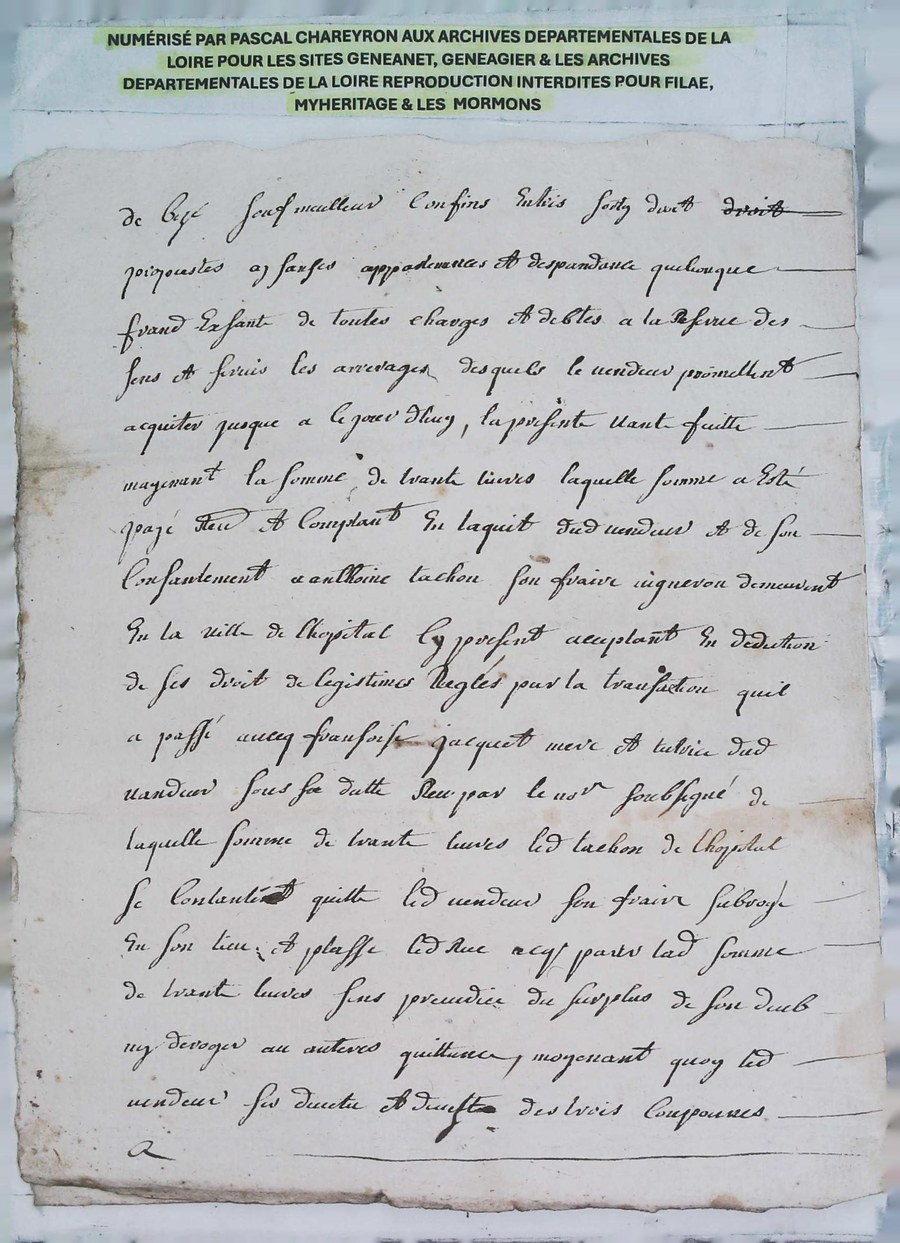 NUMÉRISÉ PAR PASCAL CHAREYRON AUX ARCHIVES DEPARTEMENTALES DE LA
LOIRE POUR LES SITES GENEANET, GENEAGIER & LES ARCHIVES
DEPARTEMENTALES DE LA LOIRE REPRODUCTION INTERDITES POUR FILAE,
MYHERITAGE & LES MORMONS
de bizé sauf meulleur Confins droit droit
aysanses appadenances et despandance quelconque
frand Exsante de toutes charges et debtes a la Reserve des
sens et servis les arrerages desquels le vendeur promettent
acquiter jusque a ce jour d'huy, la presente vante faitte
mayenant la somme de trante livres laquelle somme a Esté
payé et Comptant En laquit dud vendeur et de son
Consantement a anthoine tachon son fraire vigneron demeurent
En la ville de lhopital Cy present acceptant En deduction
de ses droit de legistimes Reglés par la transaction quil
a passé avecq fransoise jacquet mere et tutrice dud
vandeur sous sa datte Reu par le nore soubsigné de
laquelle somme de trante livres led tachon de lhopital
se Contante et quitte led vendeur son fraire subroge
En son lieu et plasse led acqr pour lad somme
de trante livres sens prejudice du surplus de son deub
ny deroger au auteres quittance, moyenant quoy led
vendeur ses devetu et des trois Coupones
a